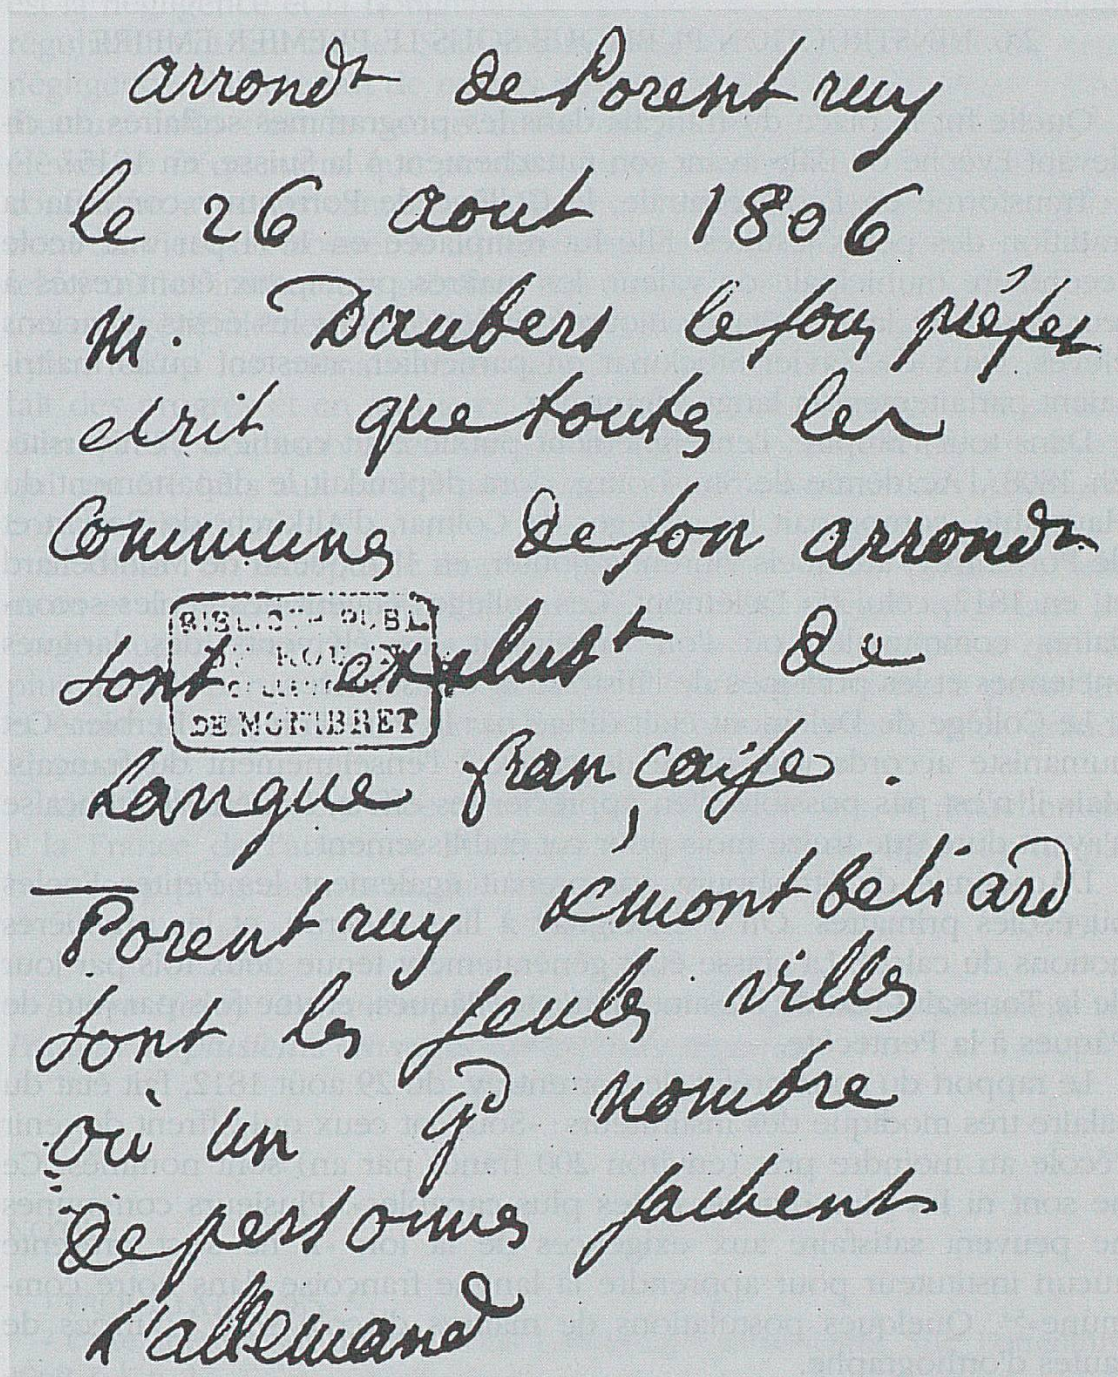 arrondt de Porentruy
le 26 aout 1806
M. Daubers le sous préfet
ecrit que toutes les
Communes de son arrondt
sont exclust de
Langue française.
BIBLIOTH PUBL
DE ROUEN
DE MONTBRET
Porentruy & montbeliard
sont les seules villes
où un gd nombre
de personnes sachent
L'allemand